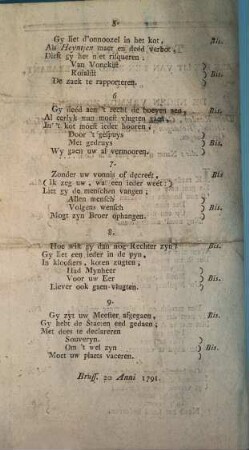 Gy liet d'onnoozel in het kot, ) Bis.
Als Heyntjen maer en deed verbot, )
Dierf gy het niet risqueren )
Van Vonckist )
Roialist )
De zaek te rapporteren. )
6
Gy deed aen 't recht de boeyen aen, ) Bis.
Al eerlyk man moest vlugten gaen, )
In 't kot moest ieder hooren )
Door 't gespuys ) Bis.
Met gedruys )
Wy gaen uw al vermooren. )
7.
Zonder uw vonnis of decreet, ) Bis.
( Ik zeg uw, wat een ieder weet )
Liet gy de menschen vangen )
Allen mensch ) Bis
Volgens wensch )
Mogt zyn Broer ophangen. )
8.
Hoe wilt gy dan nog Rechter zyn? ) Bis.
Gy liet een ieder in de pyn, )
In kloosters, keven zugten, )
Had Mynheer )
Voor uw Eer ) Bis.
Liever ook gaen vlugten. )
9.
Gy zyt uw Meester afgegaen, ) Bis.
Gy hebt de Staeten eed gedaen; )
Met dees te declareren )
Souveryn. ) Bis.
Om 't wel zyn )
Moet uw plaets vaceren. )
Bruss. 20 Anni 1791.